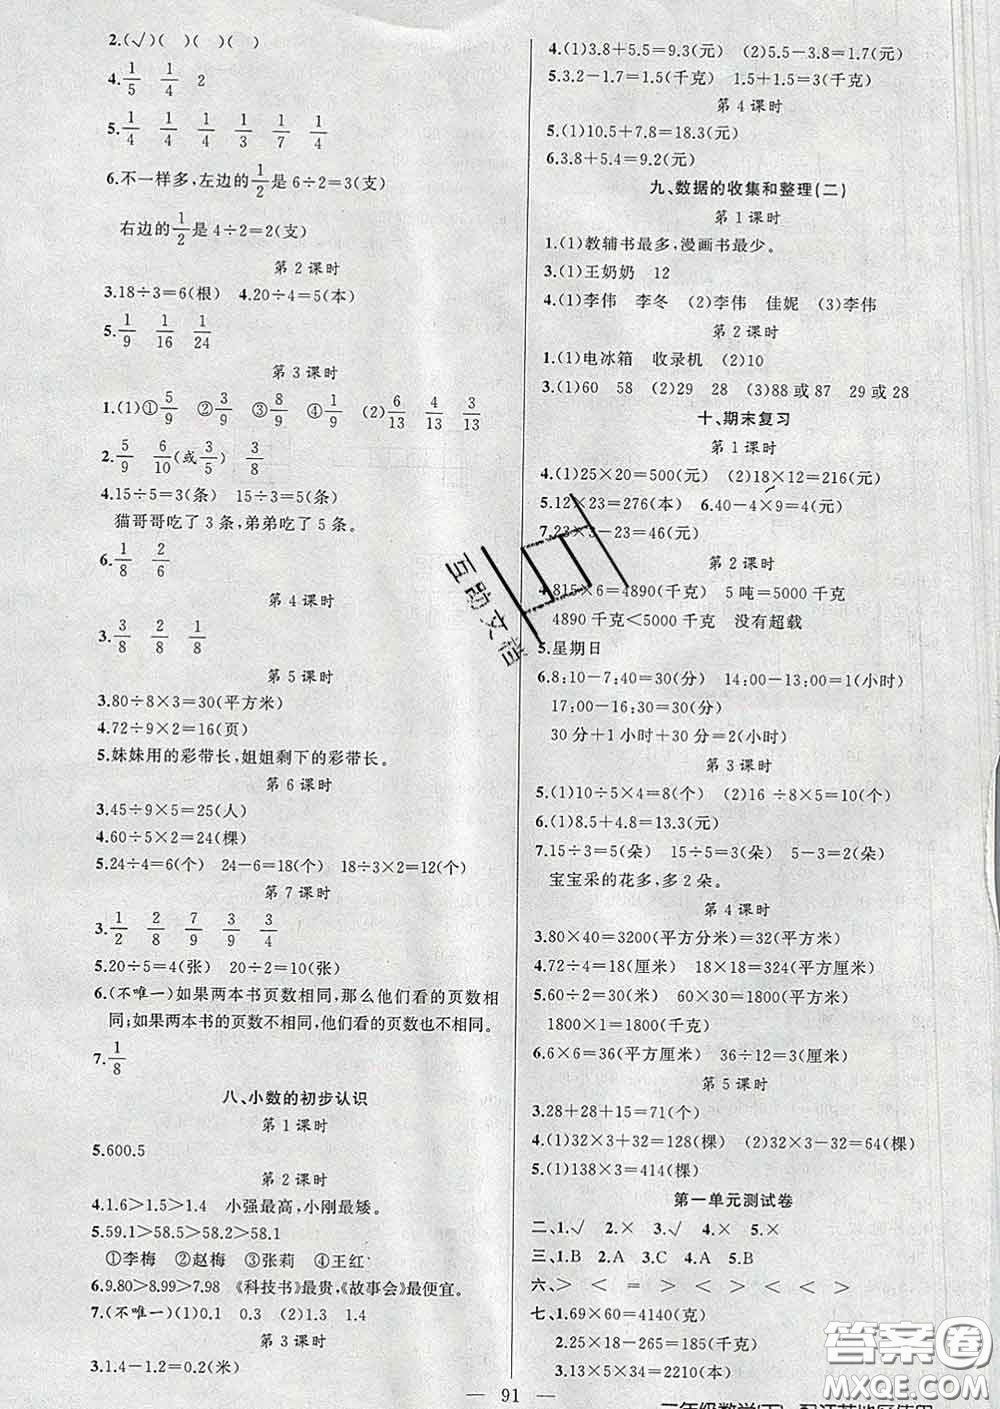 2.(√)( )( )( )
4. 1/5 1/4 2
5. 1/4 1/4 1/4 1/3 1/7 1/4
6.不一样多,左边的1/2是6÷2=3(支)
右边的1/2是4÷2=2(支)
第2课时
3.18÷3=6(根) 4.20÷4=5(本)
5. 1/9 1/16 1/24
第3课时
1.(1)①5/9 ②3/9 ③8/9 ④1/9 (2)6/13 4/13 3/13
2. 5/9 6/10(或3/5) 3/8
4.15÷5=3(条) 15÷3=5(条)
猫哥哥吃了3条,弟弟吃了5条。
6. 1/8 2/6
第4课时
3. 3/8 2/8 1/8
第5课时
3.80÷8×3=30(平方米)
4.72÷9×2=16(页)
5.妹妹用的彩带长,姐姐剩下的彩带长。
第6课时
3.45÷9×5=25(人)
4.60÷5×2=24(棵)
5.24÷4=6(个) 24-6=18(个) 18÷3×2=12(个)
第7课时
3. 1/2 2/8 7/9 3/9 3/4
5.20÷5=4(张) 20÷2=10(张)
6.(不唯一)如果两本书页数相同,那么他们看的页数相
同;如果两本书的页数不相同,他们看的页数也不相同。
7. 1/8
八、小数的初步认识
第1课时
5.600.5
第2课时
4.1.6>1.5>1.4 小强最高,小刚最矮。
5.59.1>58.5>58.2>58.1
①李梅 ②赵梅 ③张莉 ④王红
6.9.80>8.99>7.98 《科技书》最贵,《故事会》最便宜。
7.(不唯一)(1)0.1 0.3 (2)1.3 1.4
第3课时
3.1.4-1.2=0.2(米)
4.(1)3.8+5.5=9.3(元) (2)5.5-3.8=1.7(元)
5.3.2-1.7=1.5(千克) 1.5+1.5=3(千克)
第4课时
5.(1)10.5+7.8=18.3(元)
6.3.8+5.4=9.2(元)
九、数据的收集和整理(二)
第1课时
1.(1)教辅书最多,漫画书最少。
3.(1)王奶奶 12
4.(1)李伟 李冬 (2)李伟 佳妮 (3)李伟
第2课时
1.(1)电冰箱 收录机 (2)10
3.(1)60 58 (2)29 28 (3)88或87 29或28
十、期末复习
第1课时
4.(1)25×20=500(元) (2)18×12=216(元)
5.12×23=276(本) 6.40-4×9=4(元)
7.23×3-23=46(元)
第2课时
4.815×6=4890(千克) 5吨=5000千克
4890千克<5000千克 没有超载
5.星期日
6.8:10-7:40=30(分) 14:00-13:00=1(小时)
17:00-16:30=30(分)
30分+1小时+30分=2(小时)
第3课时
5.(1)10÷5×4=8(个) (2)16÷8×5=10(个)
6.(1)8.5+4.8=13.3(元)
7.15÷3=5(朵) 15÷5=3(朵) 5-3=2(朵)
宝宝采的花多,多2朵。
第4课时
3.80×40=3200(平方分米)=32(平方米)
4.72÷4=18(厘米) 18×18=324(平方米)
5.60÷2=30(米) 60×30=1800(平方米)
1800×1=1800(千克)
6.6×6=36(平方厘米) 36÷12=3(厘米)
第5课时
3.28+28+15=71(个)
4.(1)32×3+32=128(棵) (2)32×3-32=64(棵)
5.(1)138×3=414(棵)
第一单元测试卷
二、1.√ 2.× 3.√ 4.× 5.×
三、1.B 2.A 3.C 4.A 5.B
六、> < = > < > < >
七、1.69×60=4140(克)
2.25×18-265=185(千克)
3.13×5×34=2210(本)
91
互助文档
答案圈
MXQE.COM
三年级数学(下) 配江苏地区使用